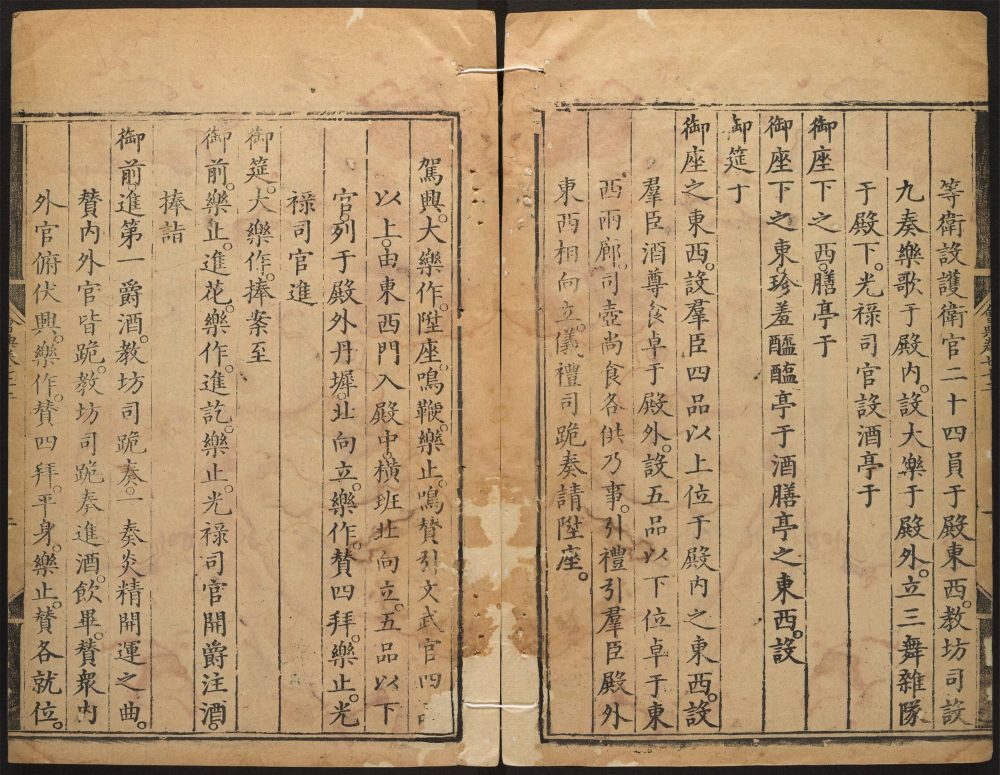 等衛設護衛官二十四員于殿東西。教坊司設
九奏樂歌于殿內。設大樂于殿外。立三舞雜隊
于殿下。光祿司官設酒亭于
御座下之西。膳亭于
御座下之東。珍羞醯醢亭于酒膳亭之東西。設
御筵于
御座之東西。設羣臣四品以上位于殿內之東西。設
羣臣酒尊食卓于殿外。設五品以下位卓于東
西兩廊。司壺尚食各供乃事。引禮引羣臣殿外
東西相向立。儀禮司跪奏請陞座。
駕興。大樂作。陞座。鳴鞭。樂止。鳴贊引文武官四品
以上。由東西門入殿中。橫班北向立。五品以下
官。列于殿外丹墀。北向立。樂作。贊四拜。樂止。光
祿司官進
御筵。大樂作。捧案至
御前。樂止。進花。樂作。進訖。樂止。光祿司官開爵注酒。
捧詣
御前。進第一爵酒。教坊司跪奏。一奏炎精開運之曲。
贊內外官皆跪。教坊司跪奏進酒。飲畢。贊衆內
外官俯伏興。樂作。贊四拜。平身。樂止。贊各就位。